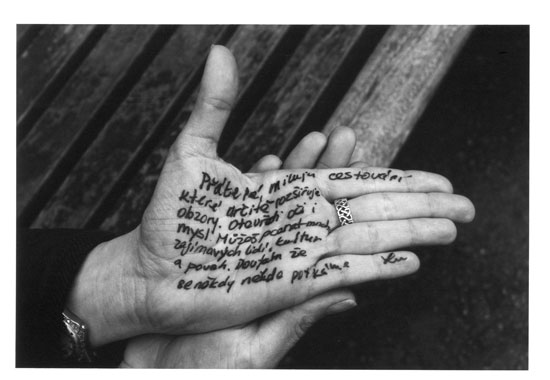 Přátelé, miluju cestování
které určitě rozšiřuje
obzory. Otevírá oči i
mysl. Můžeš poznat mnoho
zajímavých lidí, kultur
a povah. Doufám že
se někdy někde potkáme